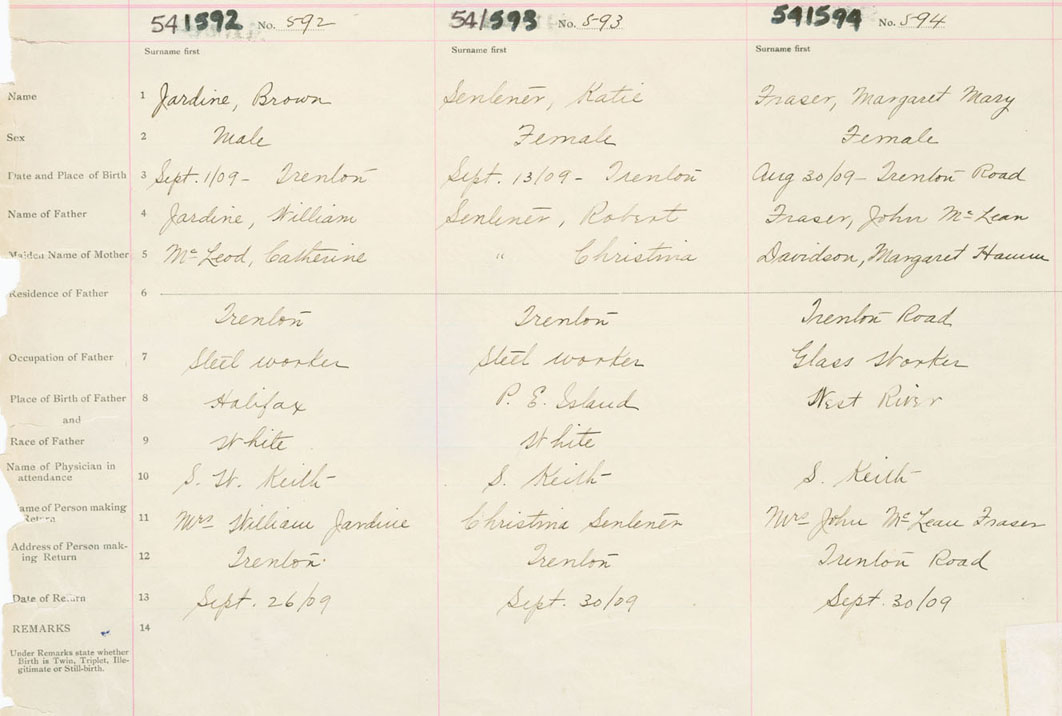 541592 No. 592 541593 No. 593 541594 No. 594
Surname first Surname first Surname first
Name 1 Jardine, Brown Senlener, Katie Fraser, Margaret Mary
Sex 2 Male Female Female
Date and Place of Birth 3 Sept. 1/09 - Trenton Sept. 13/09 - Trenton Aug 30/09 - Trenton Road
Name of Father 4 Jardine, William Senlener, Robert Fraser, John McLean
Maiden Name of Mother 5 McLeod, Catherine " Christina Davidson, Margaret
Residence of Father 6
Trenton Trenton Trenton Road
Occupation of Father 7 Steel worker Steel worker Glass Worker
Place of Birth of Father 8 Halifax P. E. Island West River
and
Race of Father 9 White White
Name of Physician in
attendance 10 S. W. Keith S. Keith S. Keith
ame of Person making
Return 11 Mrs William Jardine Christina Senlener Mrs John McLean Fraser
Address of Person mak-
ing Return 12 Trenton. Trenton Trenton Road
Date of Return 13 Sept. 26/09 Sept. 30/09 Sept. 30/09
REMARKS 14
Under Remarks state whether
Birth is Twin, Triplet, Ille-
gitimate or Still-birth.